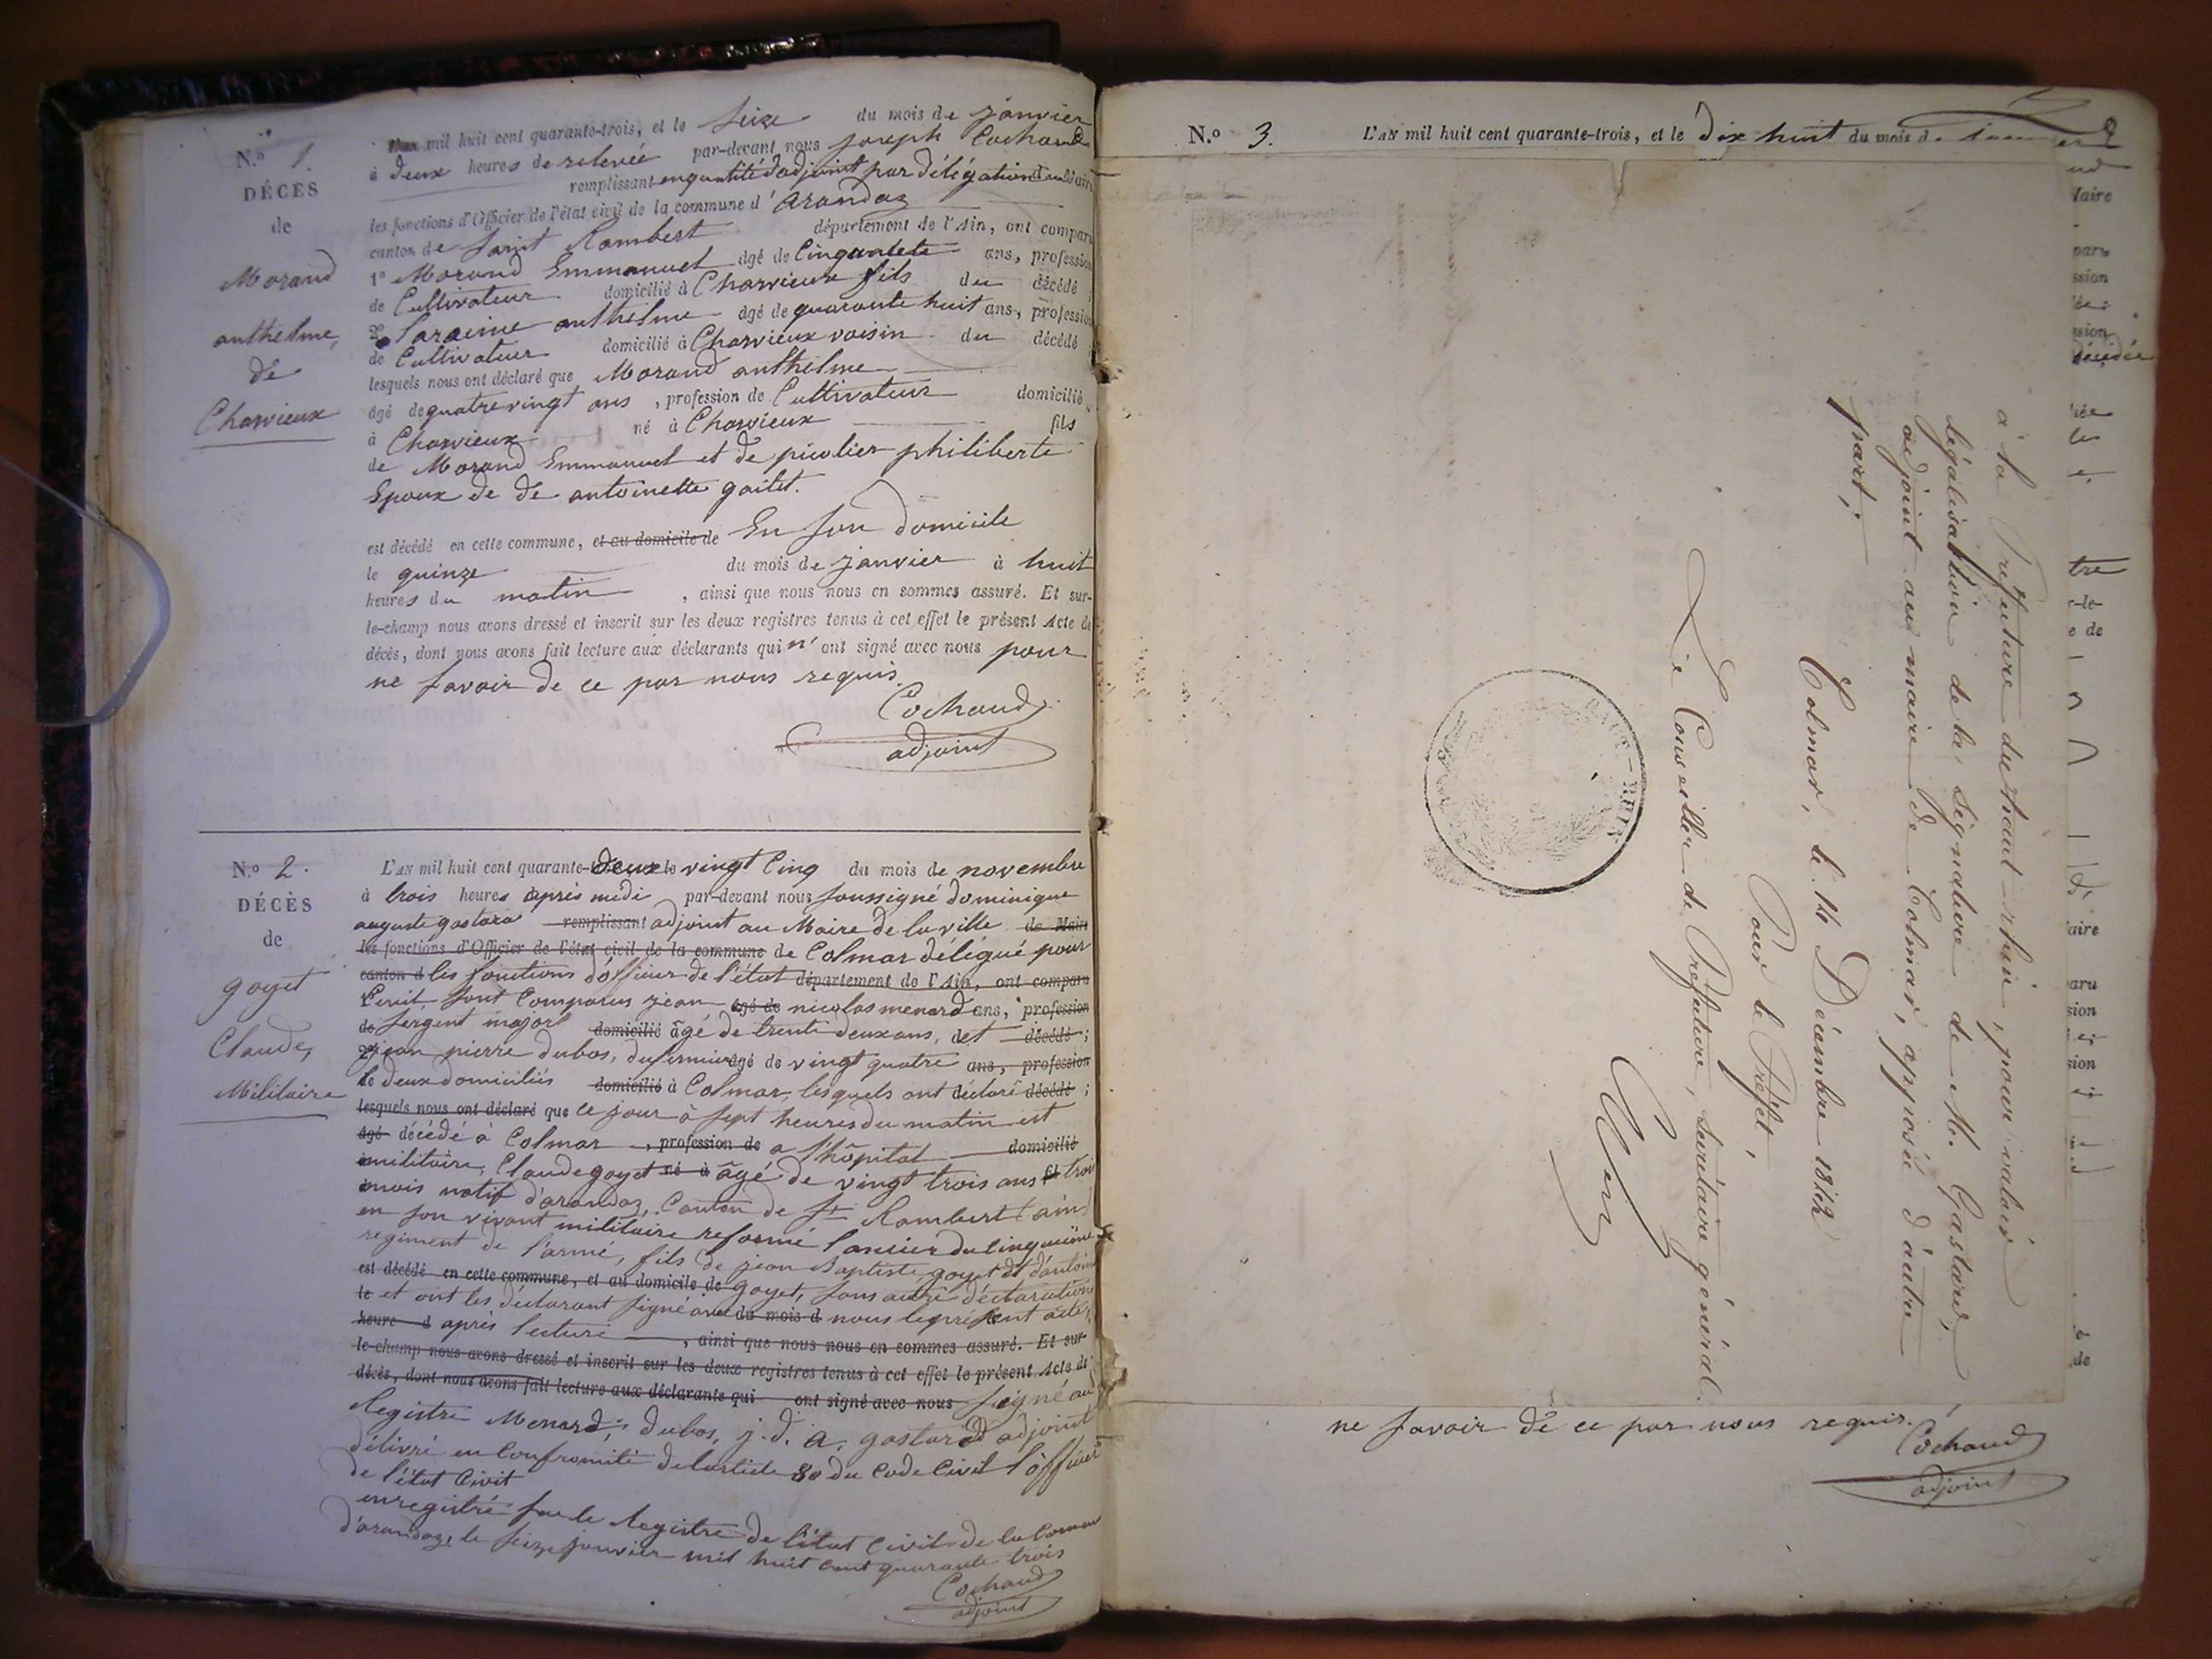 N.o 1.
DÉCÈS
de
Morand
anthelme,
de
Charvieux
L'an mil huit cent quarante-trois, et le seize du mois de janvier
à deux heures de relevée par-devant nous joseph Cochaud
remplissant en qualité d'adjoint par délégation
les fonctions d'Officier de l'état civil de la commune d'arandaz
canton de saint Rambert département de l'Ain, ont comparu
1o Morand Emmanuel âgé de Cinquante ans, profession
de Cultivateur domicilié à Charvieux fils du décédé ;
2o Saraeine anthelme âgé de quarante huit ans, profession
de Cultivateur domicilié à Charvieux voisin du décédé ;
lesquels nous ont déclaré que Morand anthelme
âgé de quatre vingt ans , profession de Cultivateur domicilié
à Charvieux né à Charvieux fils
de Morand Emmanuel et de picolier philiberte
Epoux de de antoinette goitet.
est décédé en cette commune, et au domicile de En son domicile
le quinze du mois de janvier à huit
heures du matin , ainsi que nous nous en sommes assuré. Et sur-
le-champ nous avons dressé et inscrit sur les deux registres tenus à cet effet le présent Acte de
décès, dont nous avons fait lecture aux déclarants qui n'ont signé avec nous pour
ne savoir de ce par nous requis.
Cochaud
adjoint
N.o 2.
DÉCÈS
de
goyet
Claude,
Militaire
L'AN mil huit cent quarante-deux le vingt Cinq du mois de novembre
à trois heures après midi par-devant nous soussigné dominique
auguste gastard remplissant adjoint au Maire de la ville de Maire
les fonctions d'Officier de l'état civil de la commune de Colmar délégué pour
canton d les fonctions d'officier de l'état département de l'Ain, ont comparu
Civil, sont Comparus jean âgé de nicolas menard ans, profession
de sergent major domicilié âgé de trente deux ans, et décédé ;
2o jean pierre dubos, âgé de vingt quatre ans, profession
le deux domiciliés domicilié à Colmar, lesquels ont déclaré décédé ;
lesquels nous ont déclaré que ce jour à sept heures du matin est
âgé décédé à Colmar , profession de a l'hôpital domicilié
militaire, Claude goyet né à âgé de vingt trois ans trois
mois natif d'arandaz, Canton de St Rambert (ain)
en son vivant militaire reformé lancier du cinquième
regiment de l'armé, fils de jean Baptiste goyet et d'antoin
est décédé en cette commune, et au domicile de goyet, sans autre déclaration
le et ont les déclarant signé avec du mois d nous le présent acte,
heure d après lecture , ainsi que nous nous en sommes assuré. Et sur-
le-champ nous avons dressé et inscrit sur les deux registres tenus à cet effet le présent Acte de
décès, dont nous avons fait lecture aux déclarants qui ont signé avec nous signé au
Registre Menard, dubos, j. d. a. gastard adjoint
délivré en Confromité de larticle 80 du Code Civil l'officier
de l'état Civil
enregistré sur le Registre de l'état Civil de la Commun
d'arandaz, le seize janvier mil huit cent quarante trois
Cochaud
adjoint
N.o 3. L'AN mil huit cent quarante-trois, et le dix huit du mois de
à la Préfecture du haut-rhin, pour valoir
légalisation de la signature de M. Gastard,
adjoint au maire de Colmar, apposée d'autre
part.
Colmar, le 14 Décembre 1842
Pour le Préfet,
Le Conseiller de Préfecture, secrétaire général.
HAUT-RHIN
ne savoir de ce par nous requis.
Cochaud
adjoint